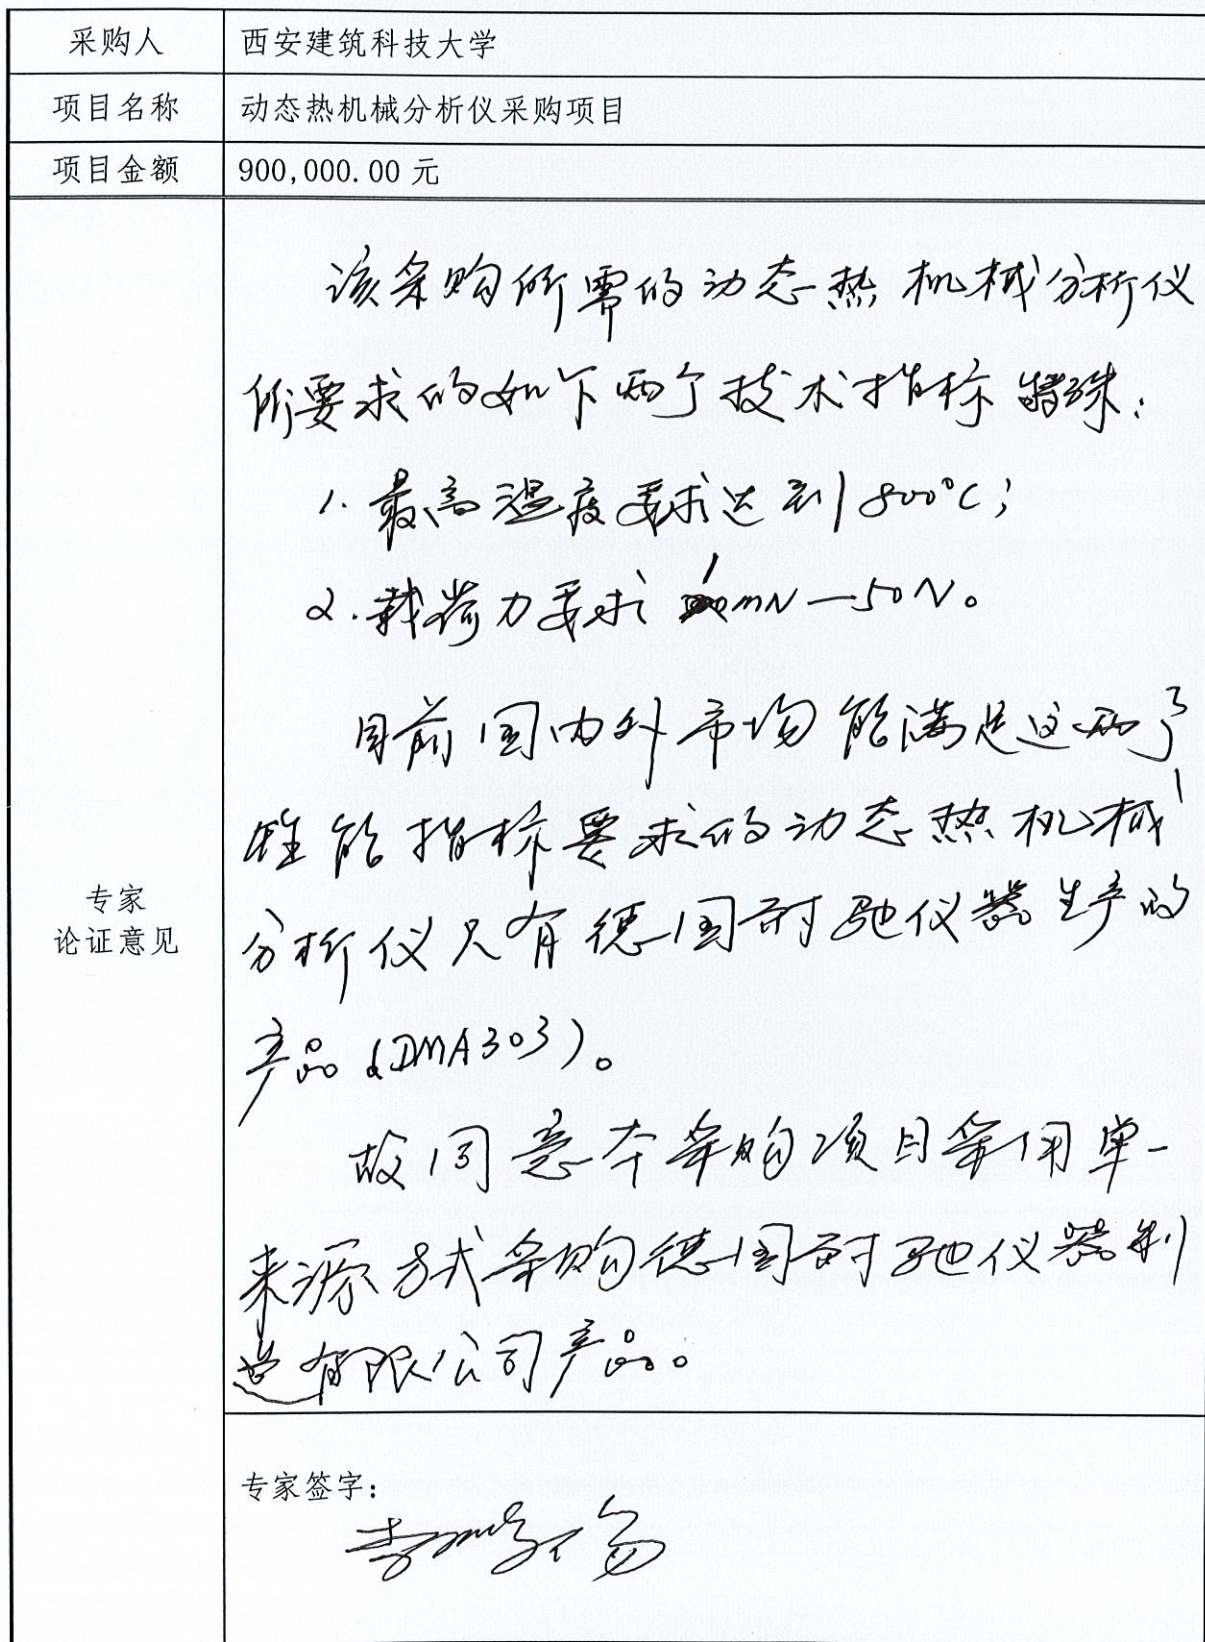 采购人 西安建筑科技大学
项目名称 动态热机械分析仪采购项目
项目金额 900,000.00 元
该采购所需的动态热机械分析仪
所要求的如下两个技术指标特殊：
1. 最高温度要求达到800℃；
2. 载荷力要求1mN—50N。
目前国内外市场能满足这两个
性能指标要求的动态热机械
专家
论证意见
分析仪只有德国耐驰仪器生产的
产品（DMA303）。
故同意本采购项目采用单一
来源方式采购德国耐驰仪器制
造有限公司产品。
专家签字：